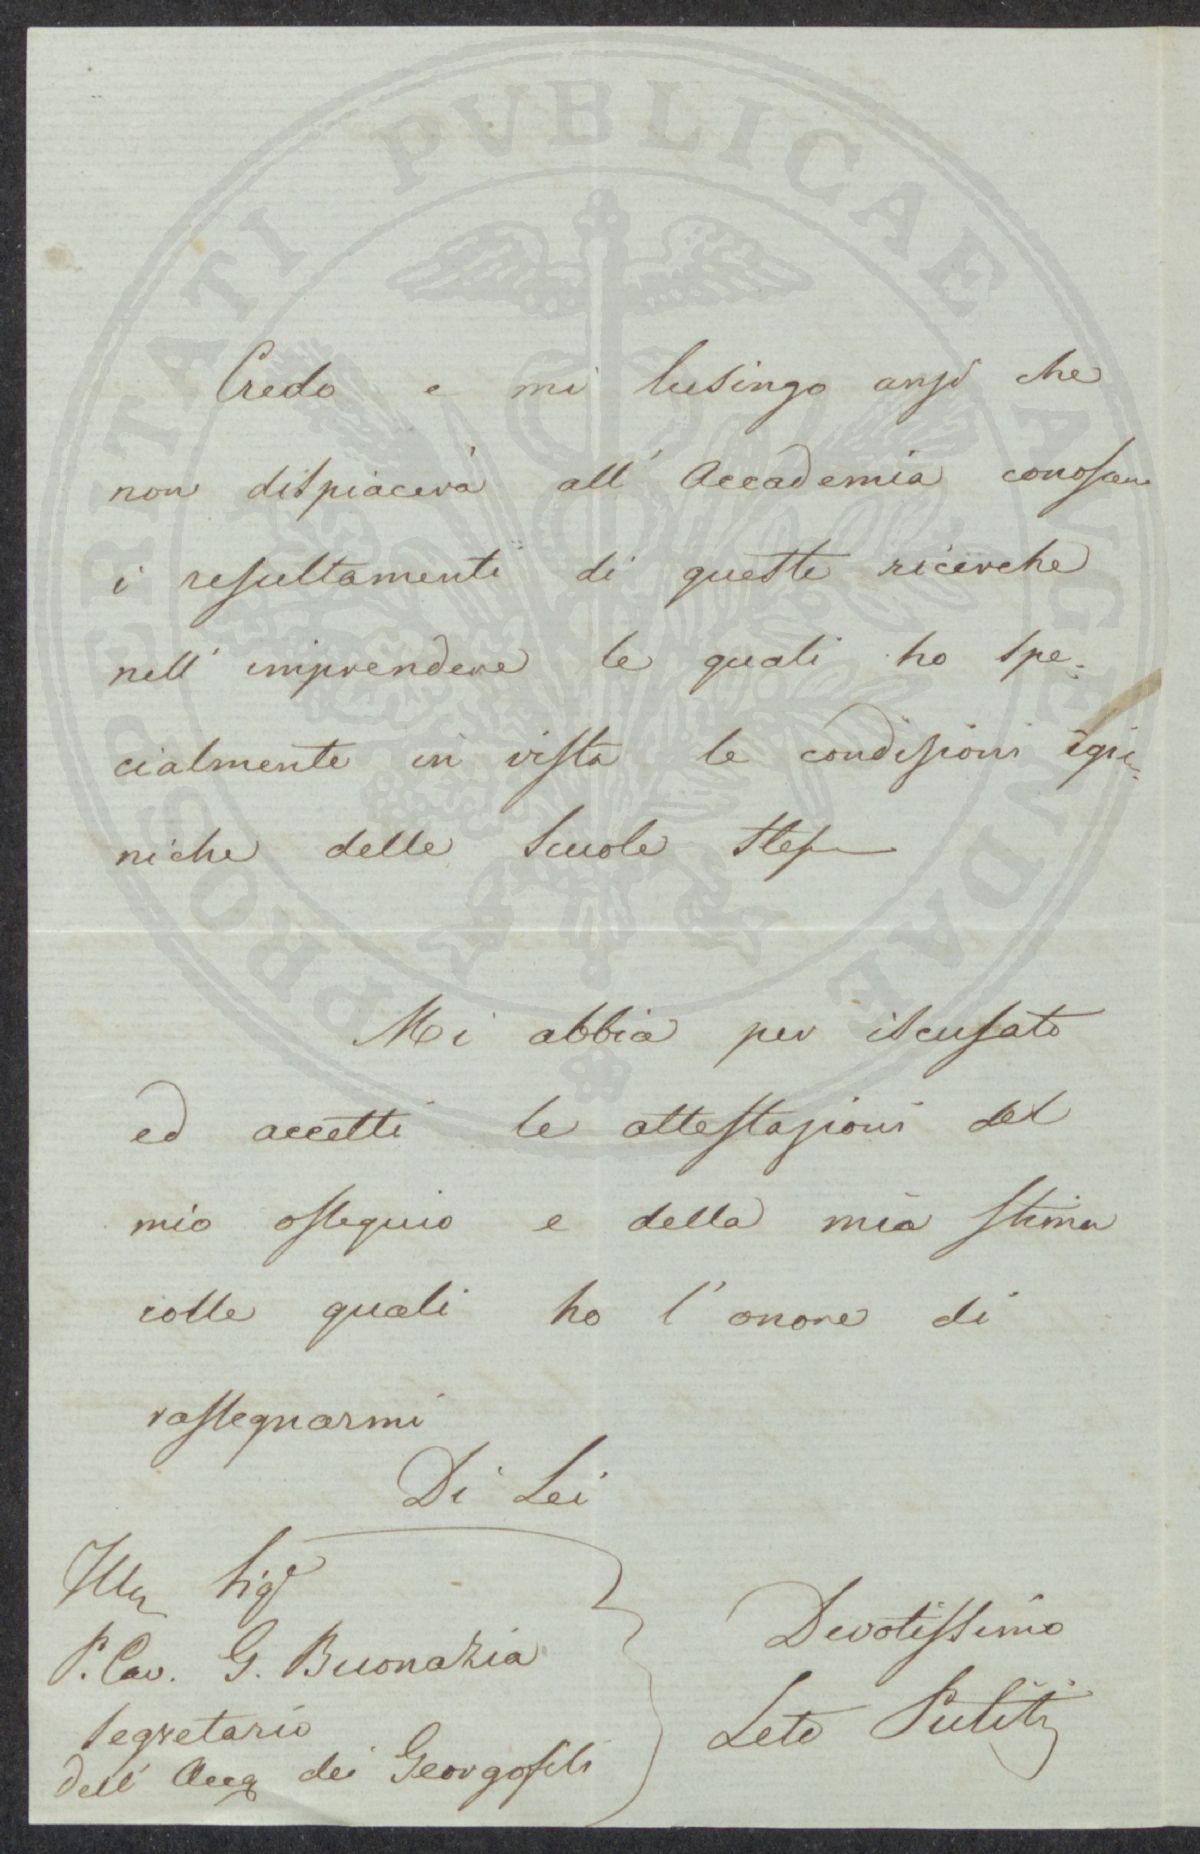 PROSPERITATI PVBLICAE AVGENDAE
Credo e mi lusingo anzi che
non dispiacerà all' Accademia conoscere
i resultamenti di queste ricerche
nell' imprendere le quali ho spe-
cialmente in vista le condizioni igie-
niche delle Scuole stesse
Mi abbia per iscusato
ed accetti le attestazioni del
mio ossequio e della mia stima
colle quali ho l' onore di
rassegnarmi
Di Lei
Illu Sigr
P. Cav. G. Buonazia
Segretario
dell' Acca dei Georgofili
Devotissimo
Leto Puliti